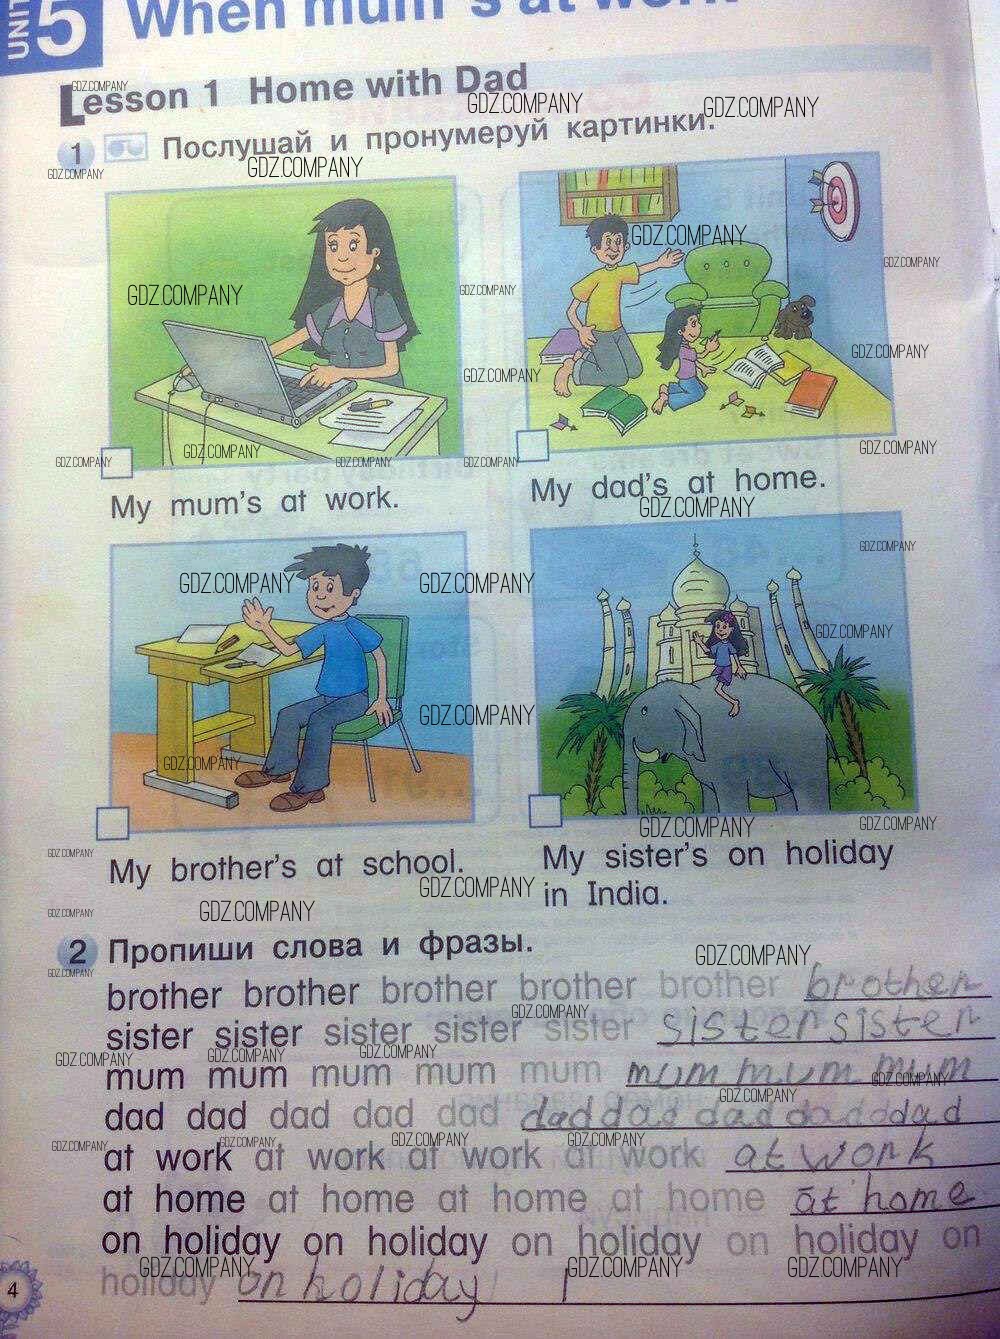 UNIT 5 When mum's at work
Lesson 1 Home with Dad
1 Послушай и пронумеруй картинки.
My mum's at work.
My dad's at home.
My brother's at school.
My sister's on holiday
in India.
2 Пропиши слова и фразы.
brother brother brother brother brother brother
sister sister sister sister sister sister sister
mum mum mum mum mum mum mum mum
dad dad dad dad dad dad dad dad dad dad
at work at work at work at work at work
at home at home at home at home at home
on holiday on holiday on holiday on holiday on
holiday on holiday
4
GDZ.COMPANY